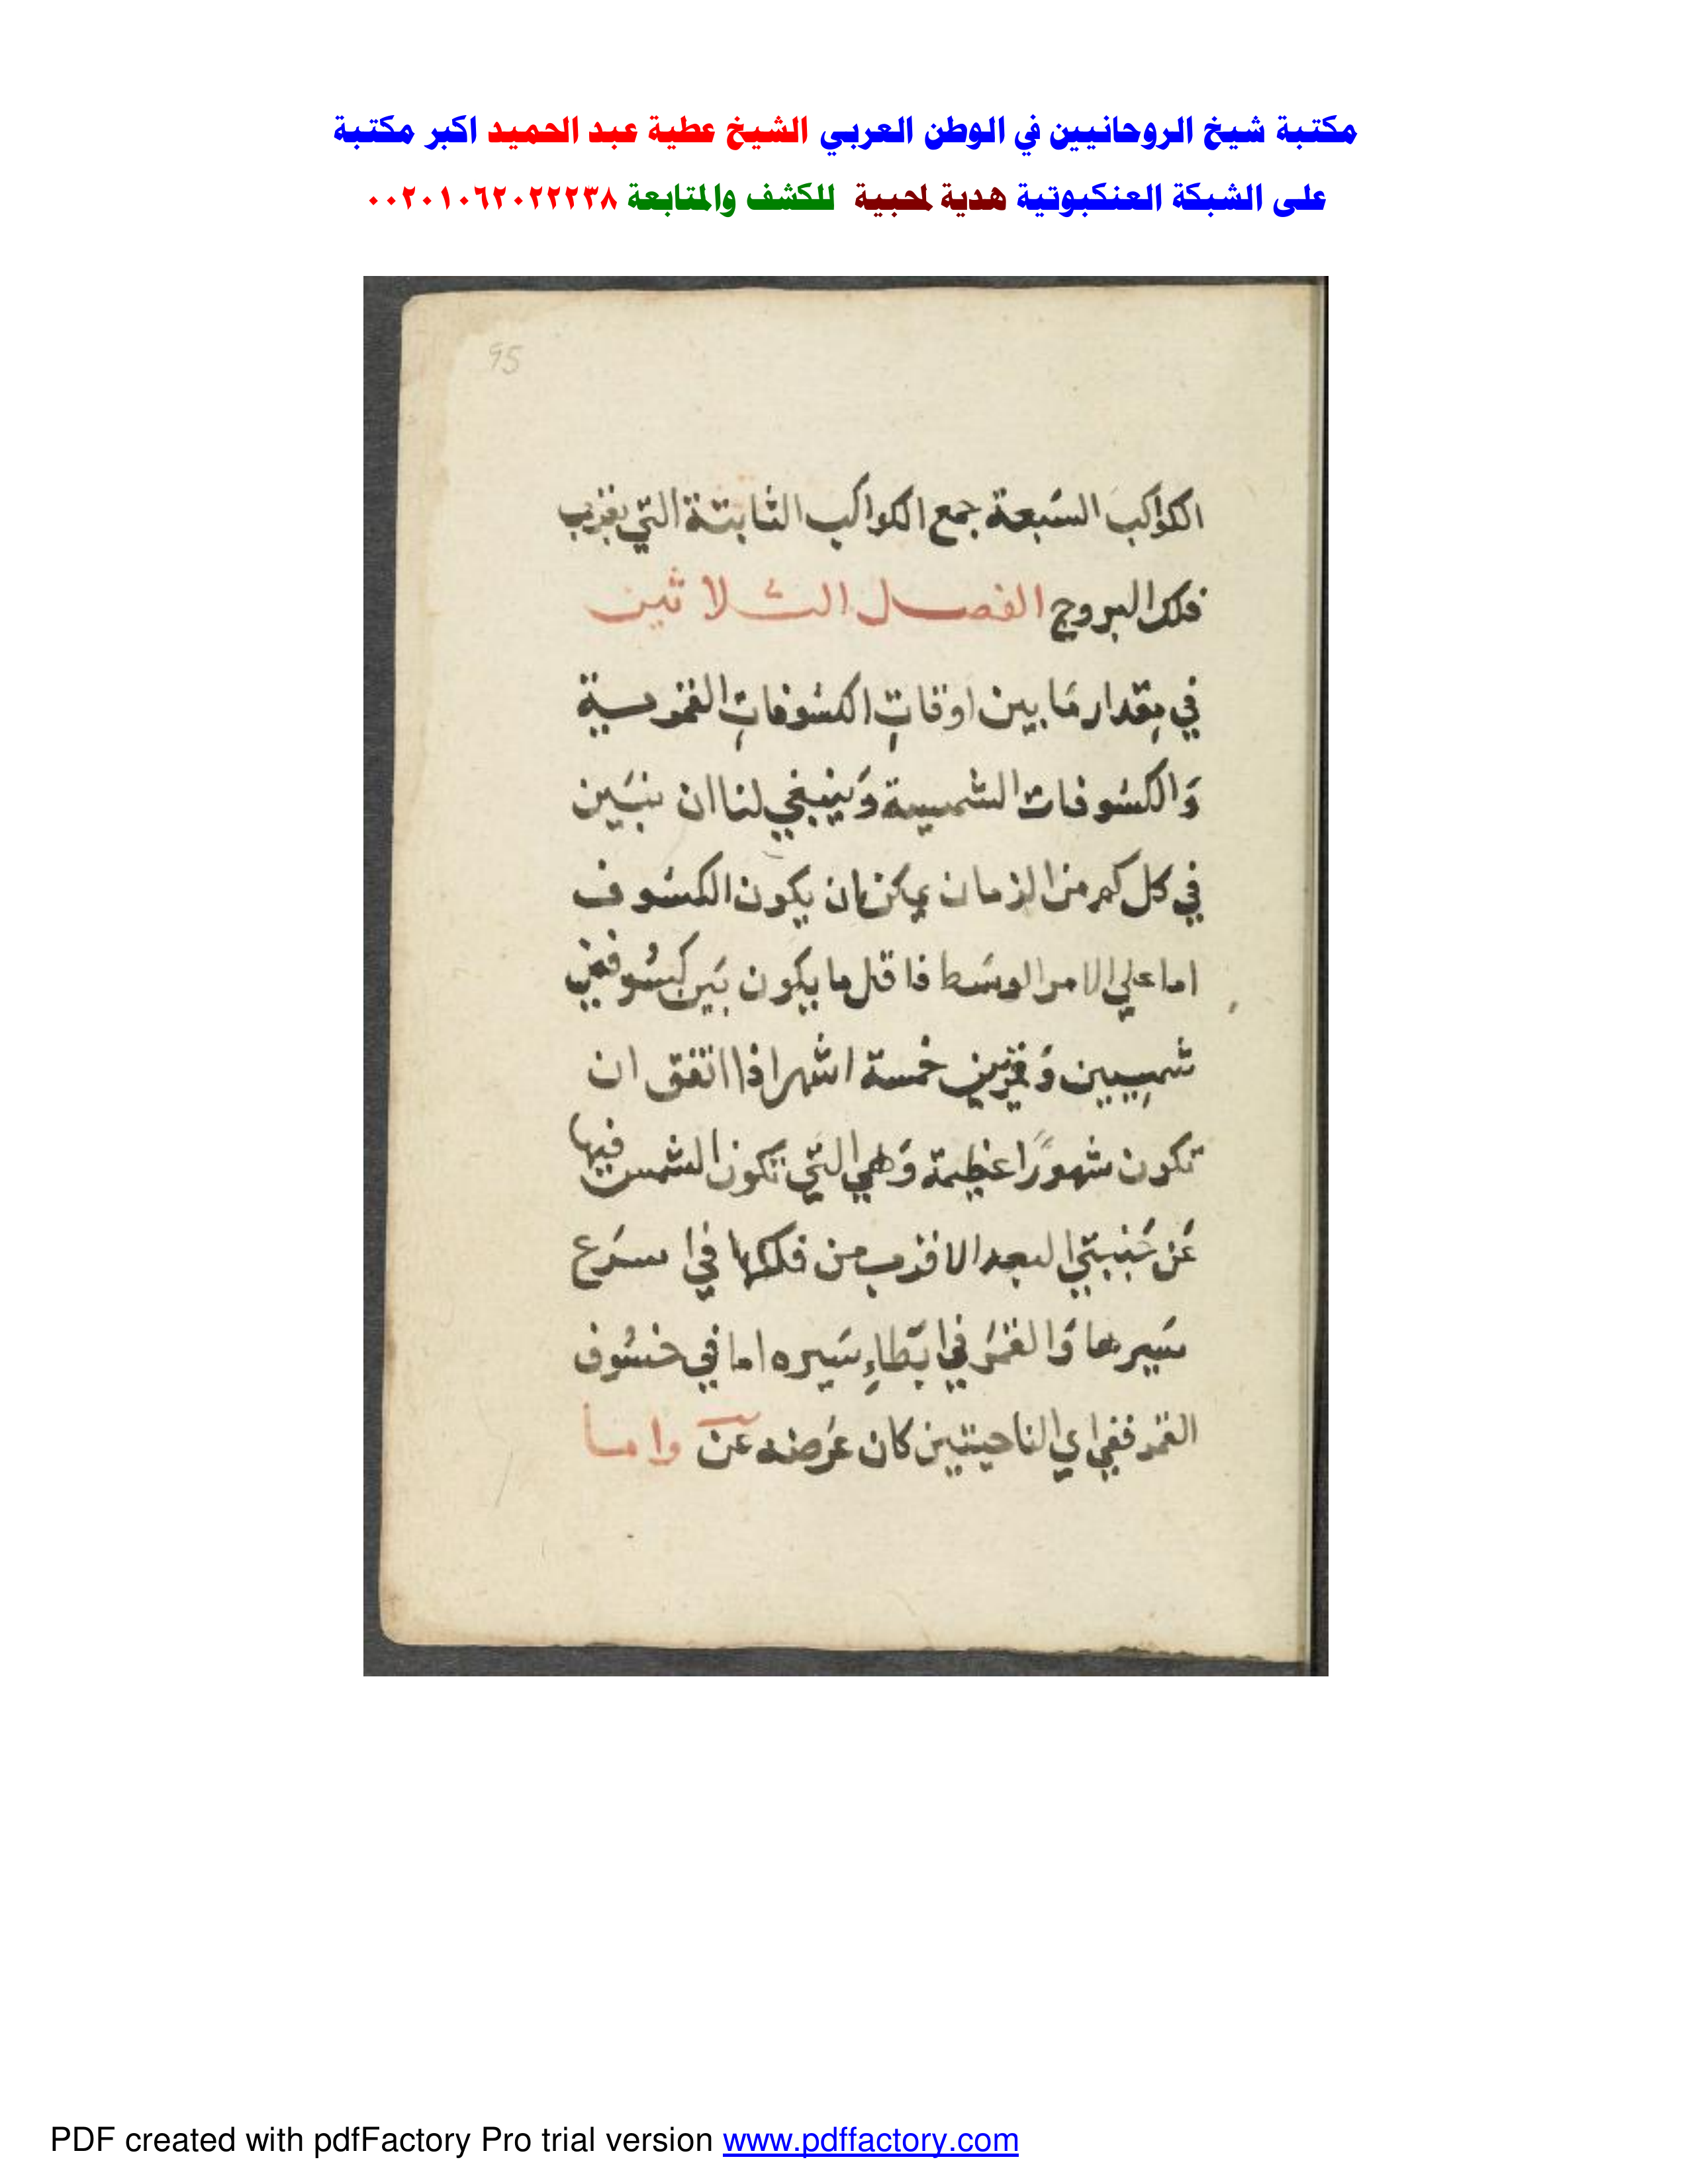 مكتبة شيخ الروحانيين في الوطن العربي الشيخ عطية عبد الحميد اكبر مكتبة
على الشبكة العنكبوتية هدية لمحبية للكشف والمتابعة ٠٠٢٠١٠٦٢٠٢٢٢٣٨
95
الكواكب السَبعة جمع الكواكب الثابتة التي بقرب
فلك البروج الفصل الثلاثين
في مِقدار مَا بين اوقاتِ الكسُوفاتِ القمرسية
وَالكسُوفات الشمسية وَينبغي لنا ان نبَين
في كل كم من الزمان يمكن ان يكون الكسُوف
اما علي الامر الوسَط فاقل ما يكون بَين كسُوفين
شمسِيين وَقمريين خمسة اشهر اذا اتفق ان
تكون شهورًا عظيمة وَهي التي تكون الشمس فيها
عَن جَنبتي البعد الاقرب من فلكها في اسرَع
سَيرها وَالقمَر في ابَطاءِ سَيره اما في خسُوف
القمر ففي اي الناحيتين كان عَرضه عَن واما
PDF created with pdfFactory Pro trial version www.pdffactory.com